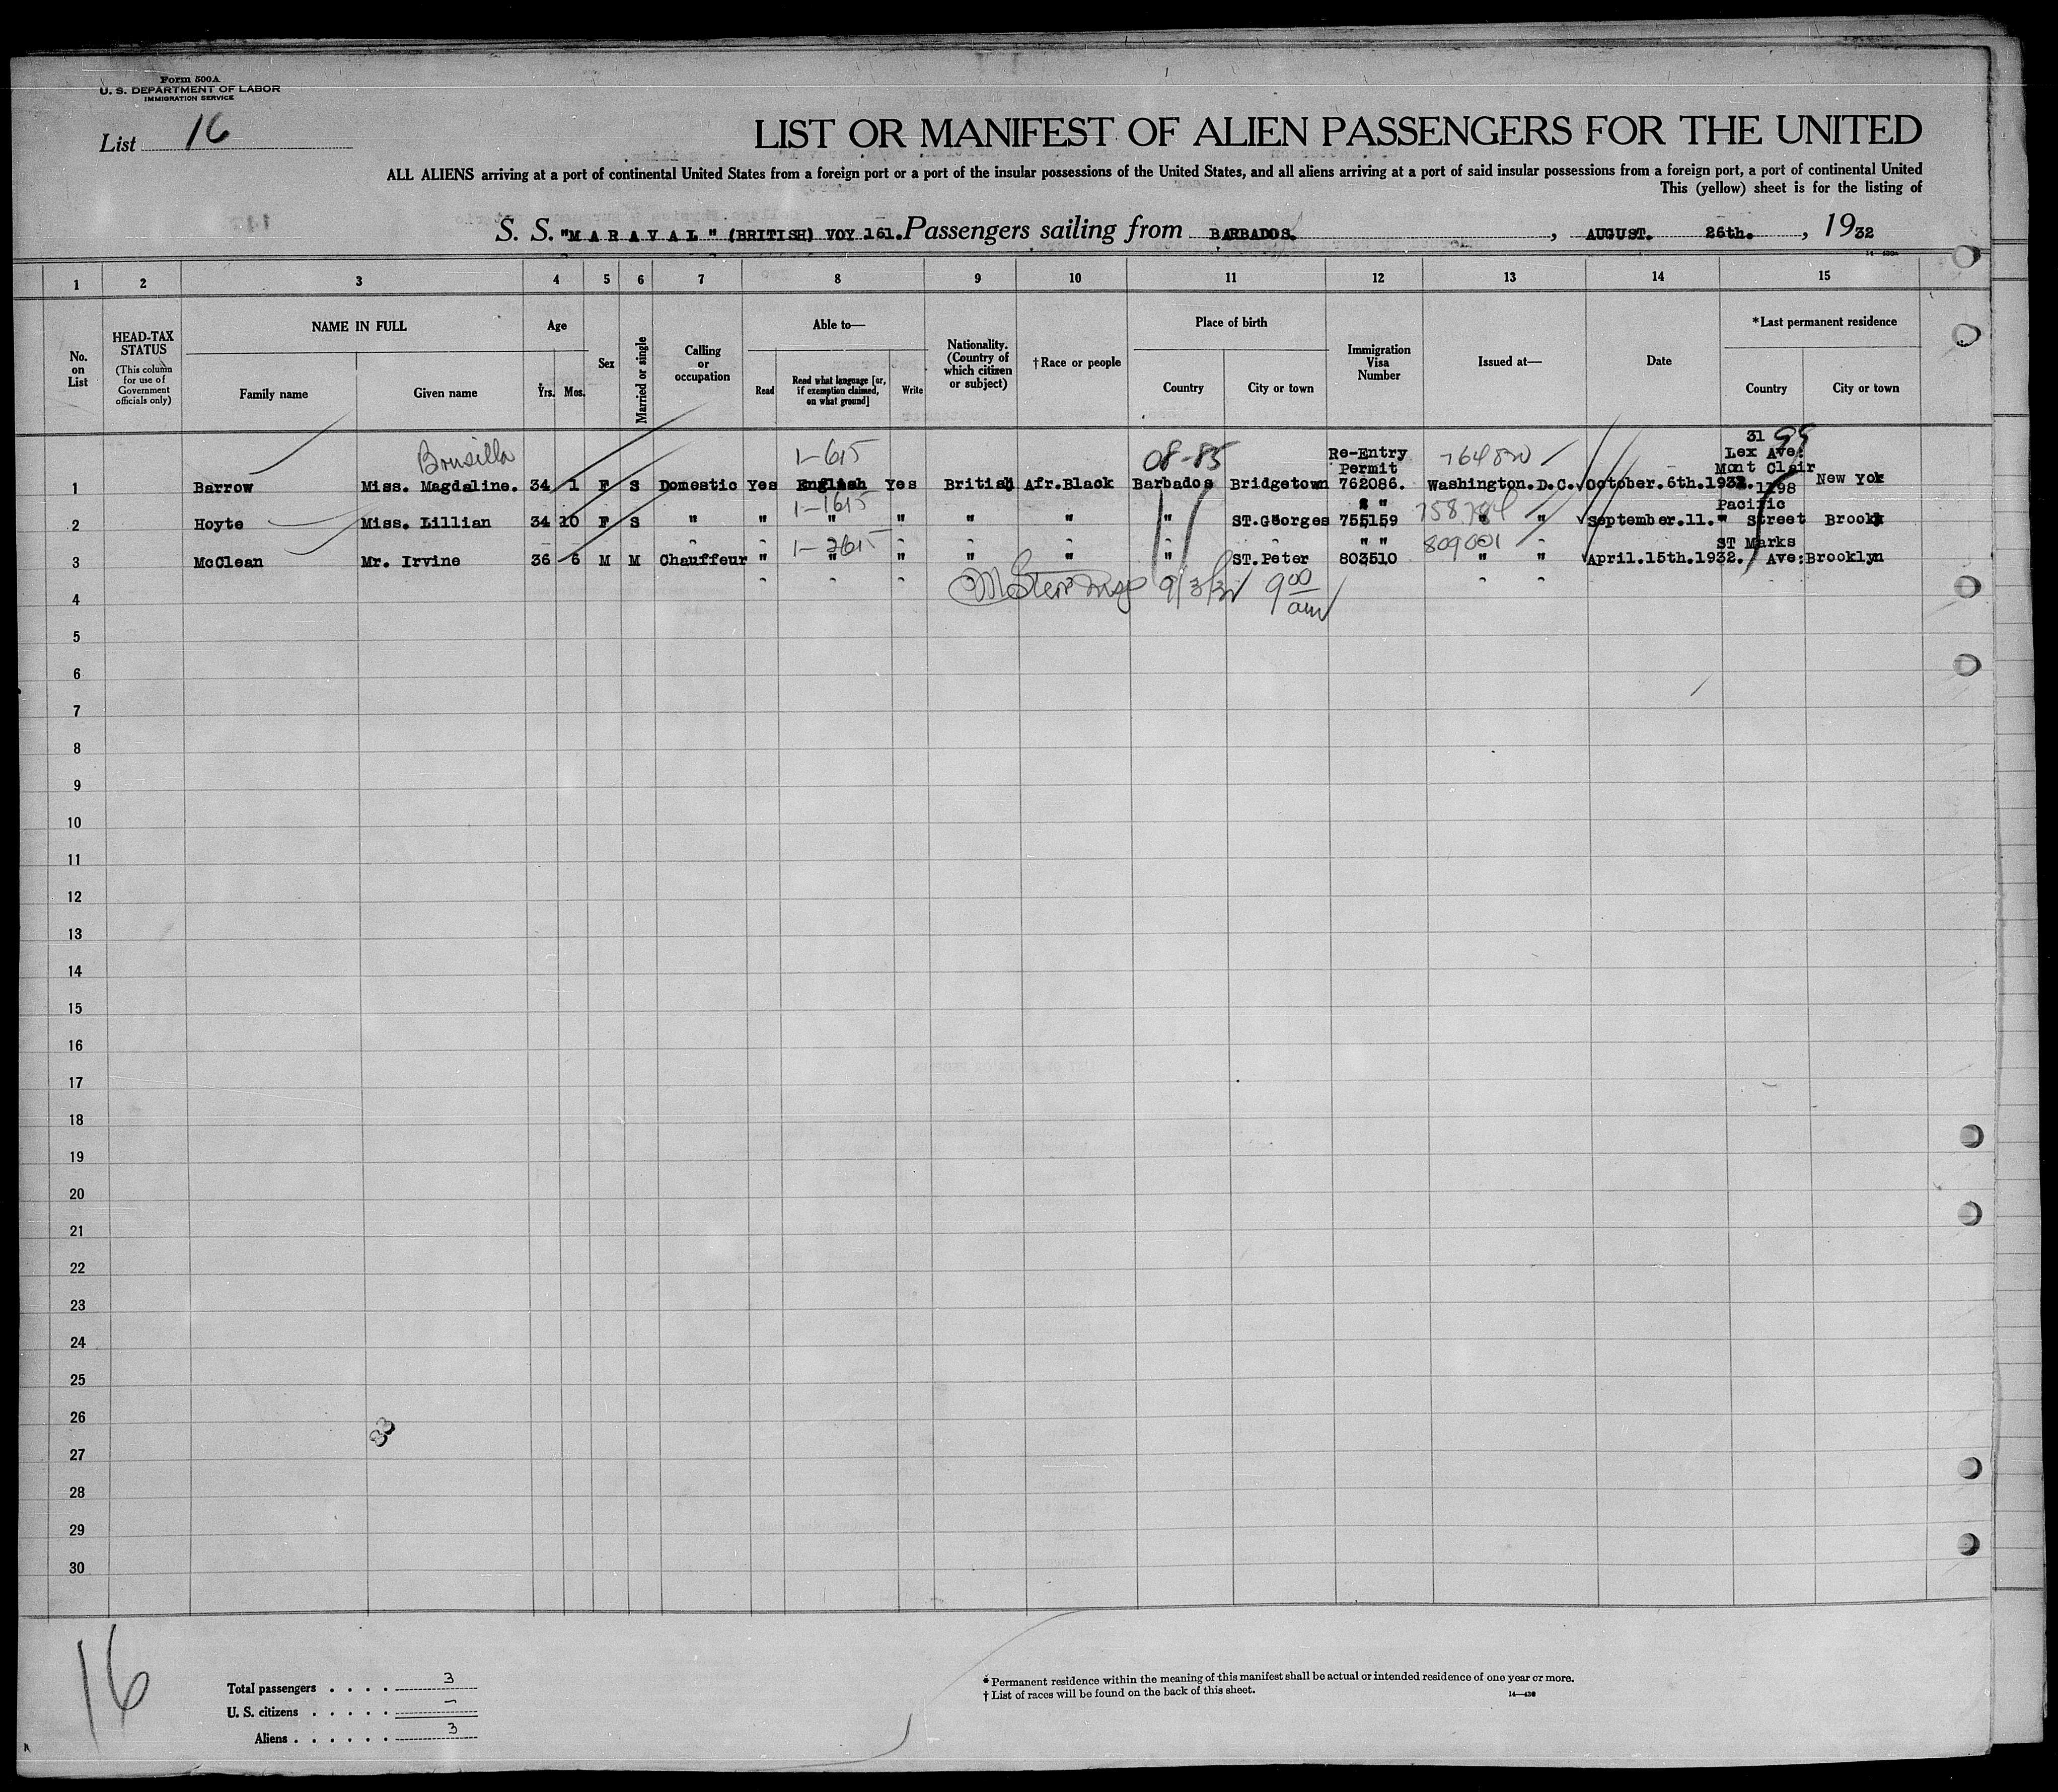 Form 500A
U. S. DEPARTMENT OF LABOR
IMMIGRATION SERVICE
List 16
LIST OR MANIFEST OF ALIEN PASSENGERS FOR THE UNITED
ALL ALIENS arriving at a port of continental United States from a foreign port or a port of the insular possessions of the United States, and all aliens arriving at a port of said insular possessions from a foreign port, a port of continental United
This (yellow) sheet is for the listing of
S. S. "MARAVAL" (BRITISH) VOY 161. Passengers sailing from BARBADOS. , AUGUST. 26th. , 1932
1 2 3 4 5 6 7 8 9 10 11 12 13 14 15
No. on List
HEAD-TAX STATUS
(This column for use of Government officials only)
NAME IN FULL
Family name Given name
Age
Yrs. Mos.
Sex
Married or single
Calling or occupation
Able to—
Read Read what language [or, if exemption claimed, on what ground] Write
Nationality. (Country of which citizen or subject)
†Race or people
Place of birth
Country City or town
Immigration Visa Number
Issued at—
Date
*Last permanent residence
Country City or town
Brusilla 1-615 08-85 Re-Entry Permit 764820 31 99 Lex Ave: Mont Clair
1 Barrow Miss. Magdaline. 34 1 F S Domestic Yes English Yes British Afr.Black Barbados Bridgetown 762086. Washington.D.C. October.6th.1932. New York
1-1615 " " 758784 1198 Pacific
2 Hoyte Miss. Lillian 34 10 F S " " " " " " " ST.Georges 755159 " " September.11. " Street Brook
1-2615 " " 809001 ST Marks
3 McClean Mr. Irvine 36 6 M M Chauffeur " " " " " " ST.Peter 803510 " " April.15th.1932. Ave: Brooklyn
9/3/32 9 00 am
4
5
6
7
8
9
10
11
12
13
14
15
16
17
18
19
20
21
22
23
24
25
26
27
28
29
30
33
16
Total passengers . . . . 3
U. S. citizens . . . . . –
Aliens . . . . . . 3
* Permanent residence within the meaning of this manifest shall be actual or intended residence of one year or more.
† List of races will be found on the back of this sheet.
14—436